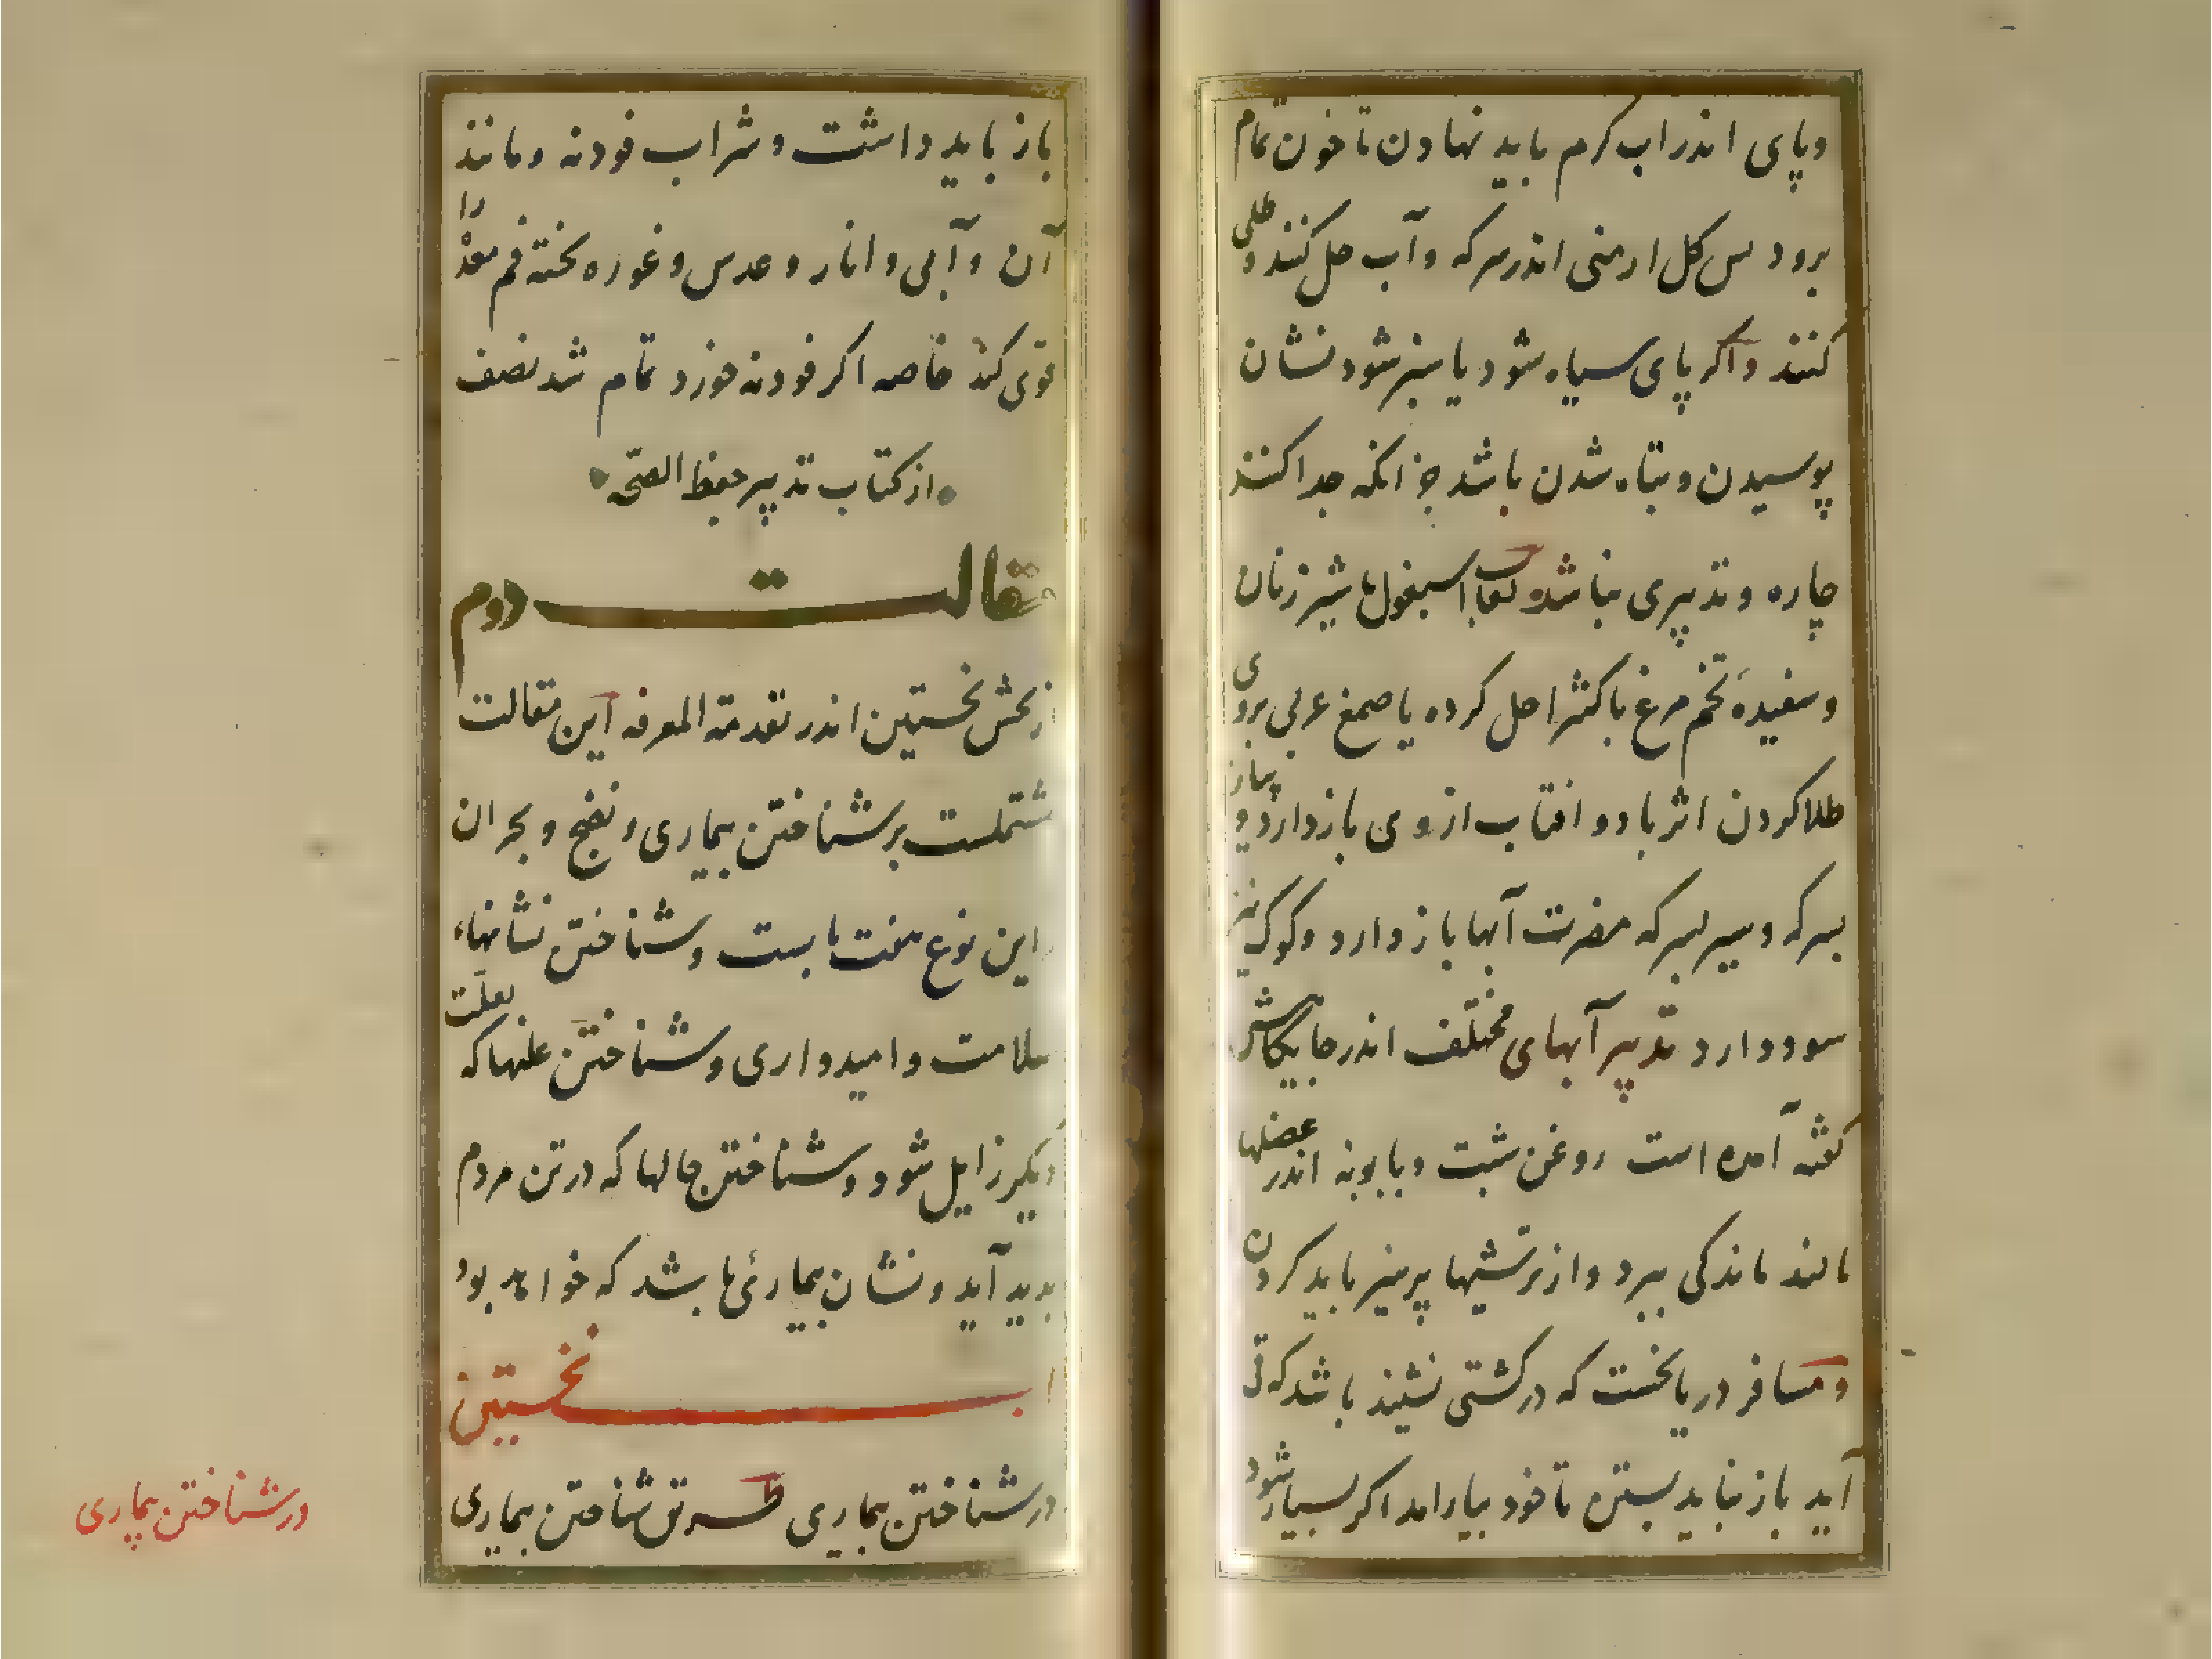 وپای اندراب کرم باید نهادن تا خون تمام
برود پس کل ارمنی اندر سرکه وآب حل کنند و طلی
کنند واکر پای سیاه شود یا سبز شود نشان
پوسیدن و تباه شدن باشد جز انکه جدا کنند
چاره وتدبیری نباشد لعاب اسبغول با شیر زنان
وسفیدهٔ تخم مرغ با کثیرا حل کرده یا صمغ عربی بروی
طلا کردن اثر باد و افتاب از وی بازدارد و پیاز
بسرکه وسیر بسرکه مضرت آبها باز دارد وکوک نیز
سود دارد تدبیر آبهای مختلف اندر جایکاهش
کفته آمده است روغن شبت وبابونه اندر عضلها
مالند ماندکی ببرد واز ترشیها پرهیز باید کردن
ومسافر دریا نخست که در کشتی نشیند باشد که قی
آید باز نباید بستن تا خود بیارامد اکر بسیار شود
باز باید داشت وشراب فودنه ومانند
آن وآبی وانار وعدس وغوره پخته فم معده را
قوی کند خاصه اکر فودنه خورد تمام شد نصف
از کتاب تدبیر حفظ الصحه
مقالت دوم
از بخش نخستین اندر تقدمة المعرفه این مقالت
مشتملست بر شناختن بیماری ونضج وبحران
واین نوع هفت بابست وشناختن نشانهاء
سلامت وامیدواری وشناختن علتها که بعلت
دیکر زایل شود وشناختن حالها که در تن مردم
بدید آید ونشان بیماریٔ باشد که خواهد بود
باب نخستین
در شناختن بیماری طریق شناختن بیماری
در شناختن بیماری